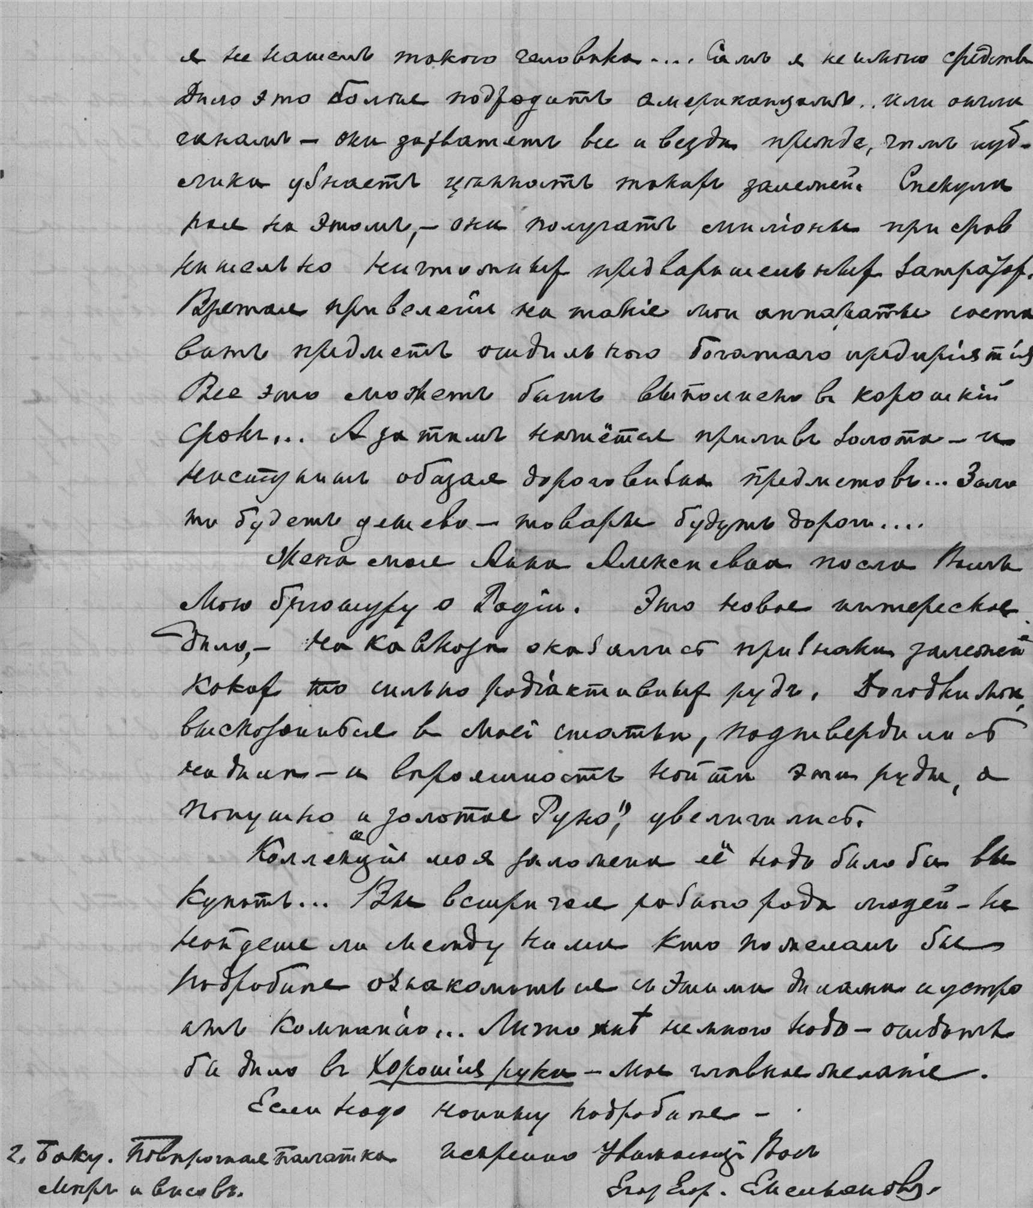 я не нашелъ такого человѣка.... Самъ я не имѣю средствъ
Дѣло это болѣе подходитъ американцамъ.. или англи
чанамъ — они захватятъ все и вездѣ прежде, чѣмъ пуб-
лика узнаетъ цѣнность такихъ залежей. Спекули
руя на этомъ, — они получатъ милліоны при срав
нительно ничтожныхъ предварительныхъ затратахъ.
Взятая привелегія на такіе мои аппараты соста
витъ предметъ отдѣльнаго богатаго предпріятія
Все это можетъ быть выполнено въ короткій
срокъ... А затѣмъ начнётся приливъ золота — и
наступитъ общая дороговизна предметовъ... Золо
то будетъ дешево — товары будутъ дороги....
Жена моя Анна Алексѣевна посла Вамъ
мою брошуру о Радіи. Это новое интересное
дѣло, — на Кавказѣ оказались признаки залежей
какихъ то сильно радіактивныхъ рудъ. Догадки мои,
высказанныя въ моей статьѣ, подтвердились
на дѣлѣ — и вѣроятность найти эти руды, а
попутно и золотое Руно", увеличились.
Коллекція моя заложена её надо было бы вы
купить... Вы встрѣчая разнаго рода людей — не
найдете ли между ними кто пожелалъ бы
подробнѣе ознакомиться съ этими дѣлами и устро
ить компанію... Мнѣ немного надо — отдать
бы дѣло въ хорошія руки — мое главное желаніе.
Если надо напишу подробнѣе —
г. Баку. Повѣрочная палатка искренно Уважающій Васъ
мѣръ и вѣсовъ. Егор Егор. Емельяновъ.